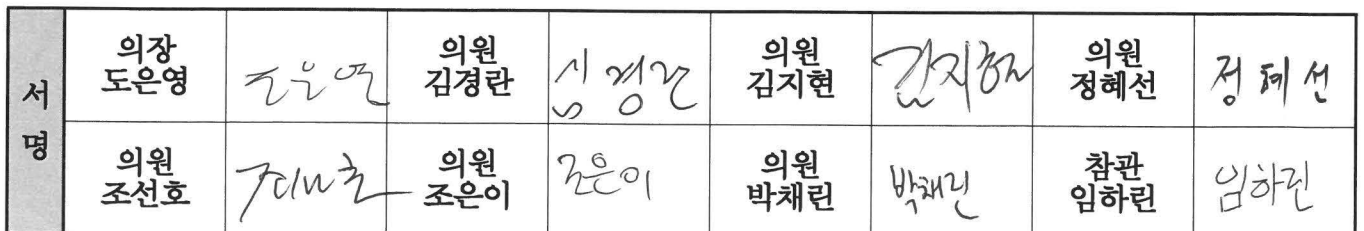 서명
의장
도은영
의원
김경란
김경란
의원
김지현
김지현
의원
정혜선
정혜선
의원
조선호
의원
조은이
조은이
의원
박채린
박채린
참관
임하린
임하린